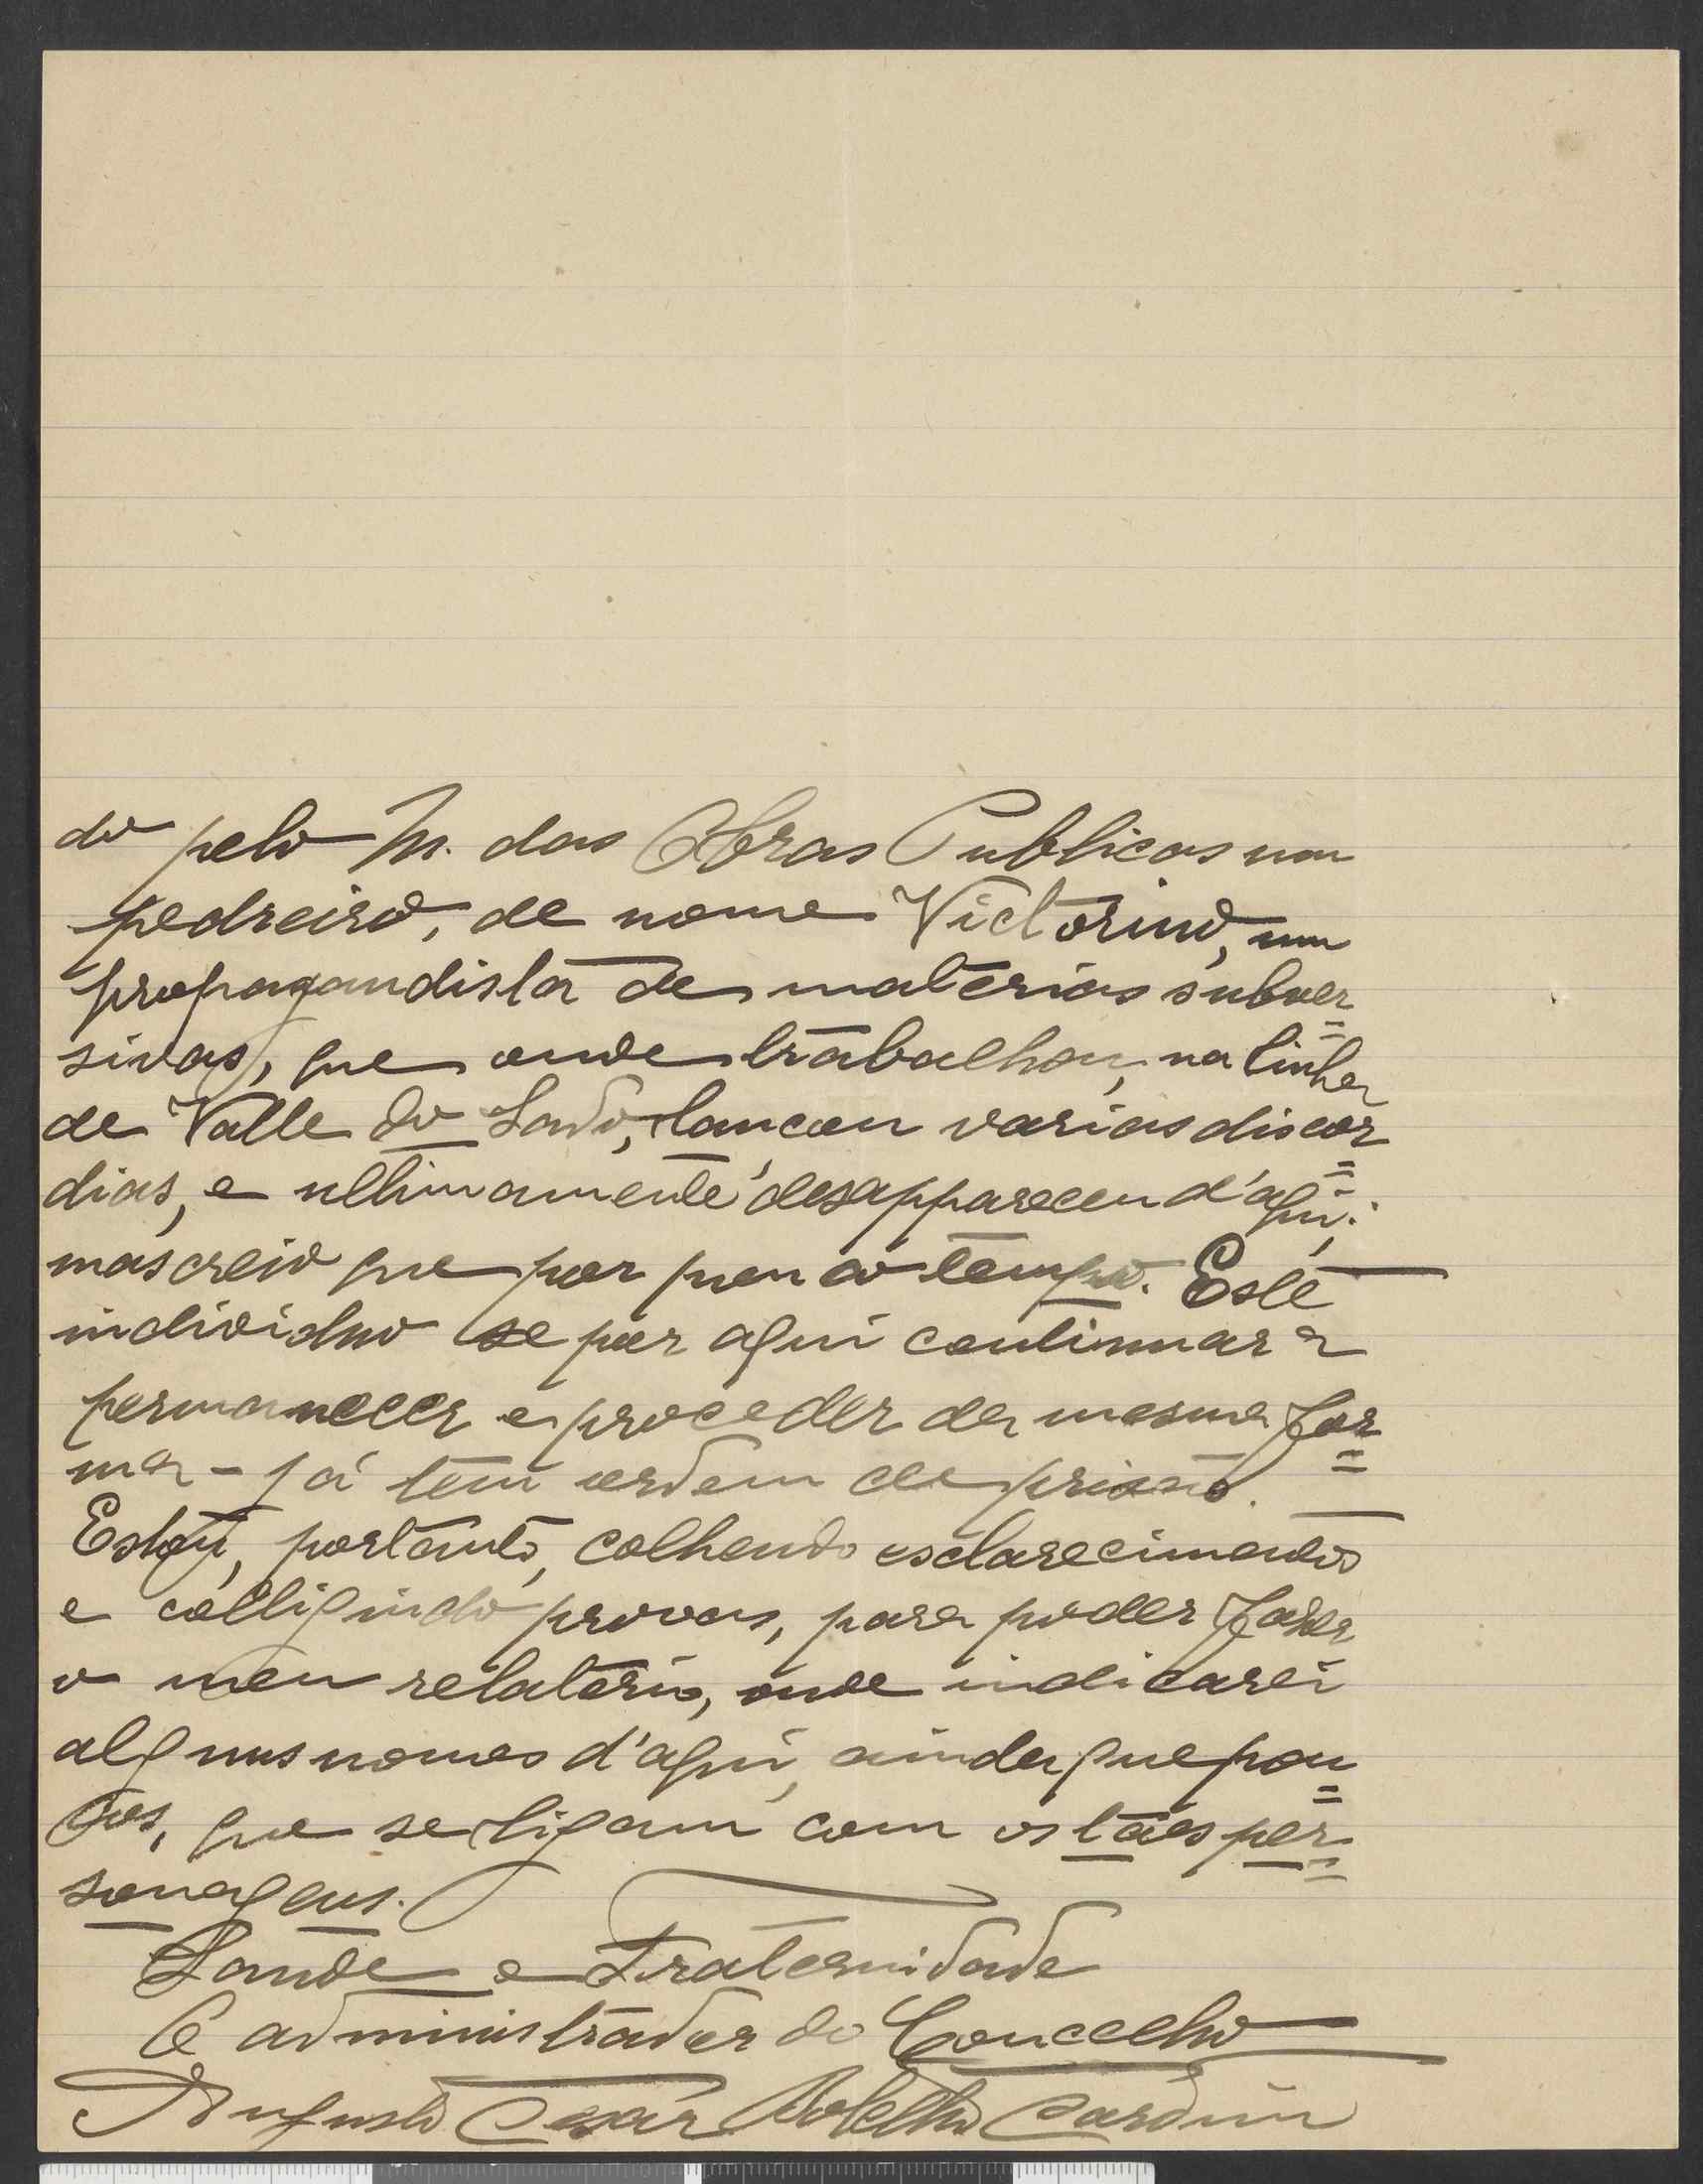 do pelo M. das Obras Publicas um
pedreiro, de nome Victorino, um
propagandista de materias subver=
sivas, que onde trabalhou, na linha
de Valle do Sado, lançou varias discor=
dias, e ultimamente desappareceu d'aqui;
mas creio que por pouco tempo. Este
individuo se por aqui continuar a
permanecer e proceder da mesma for=
ma - já tem ordem de prisão.
Estou, portanto, colhendo esclarecimentos
e colligindo provas, para poder fazer
o meu relatorio, onde indicarei
alguns nomes d'aqui, ainda que pou=
cos, que se ligam com os taes per=
sonagens.
Saude e Fraternidade
O administrador do Concelho
Augusto Cesar Botelho Cardim